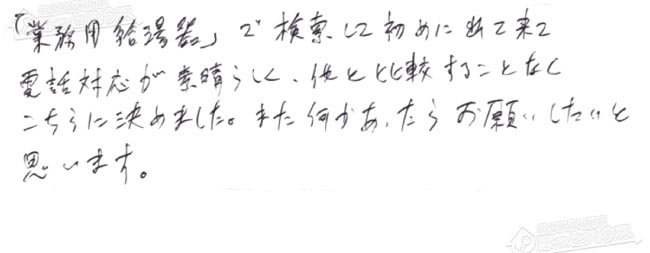 「業務用給湯器」で検索して初めに出て来て
電話対応が素晴らしく、他と比較することなく
こちらに決めました。また何かあったらお願いしたいと
思います。